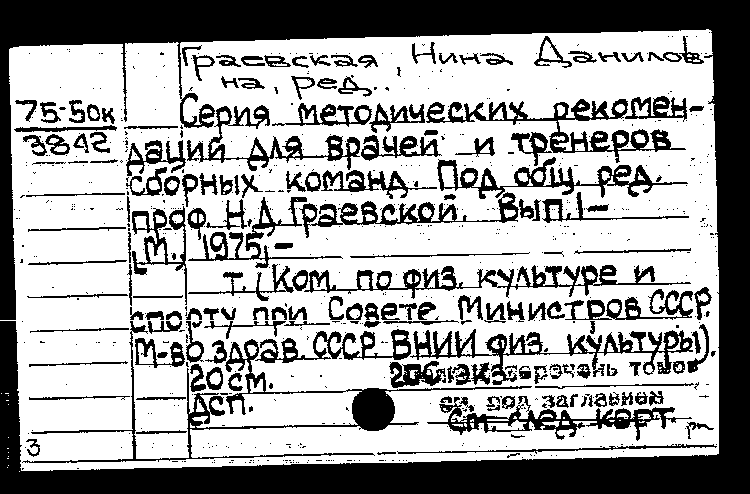 Граевская, Нина Данилов-
на, ред..
75-50к
3842
Серия методических рекомен-
даций для врачей и тренеров
сборных команд. Под общ. ред.
проф. Н.Д. Граевской. Вып. 1-
[М., 1975]-
т. (Ком. по физ. культуре и
спорту при Совете Министров СССР.
М-во здрав. СССР. ВНИИ физ. культуры).
20 см.
перечень томов
ДСП.
см. под заглавием
См. след. карт.
3